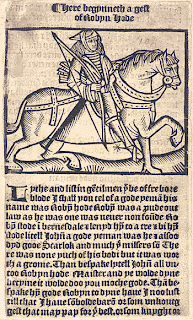 Here begynneth a gest
of Robyn Hode
Lythe and listin gētilmen yͭ be of fre bore
blode I shall you tel of a gode yeman his
name was Robyn hode Robyn was a prude out
law as he was one was neuer non foūde Ro
byn stode ī bernesdale & lenyd hȳ to a tre & bi hȳ
stode litell Johñ a gode yeman was he & also
dyd gode Scarlok and much yͤ millers sō The
re was none ynch of his bodi but it was wor
th a grome. Than bespake lytell Johñ all vn
to Robyn hode Maister and ye wolde dyne
betyme it wolde doo you moche gode. Thā be
spake hȳ gode Robyn to dyne haue I no lust
till that I haue bolde barō or som vnkouth
gest that may pay for yͤ best. or som knyght or